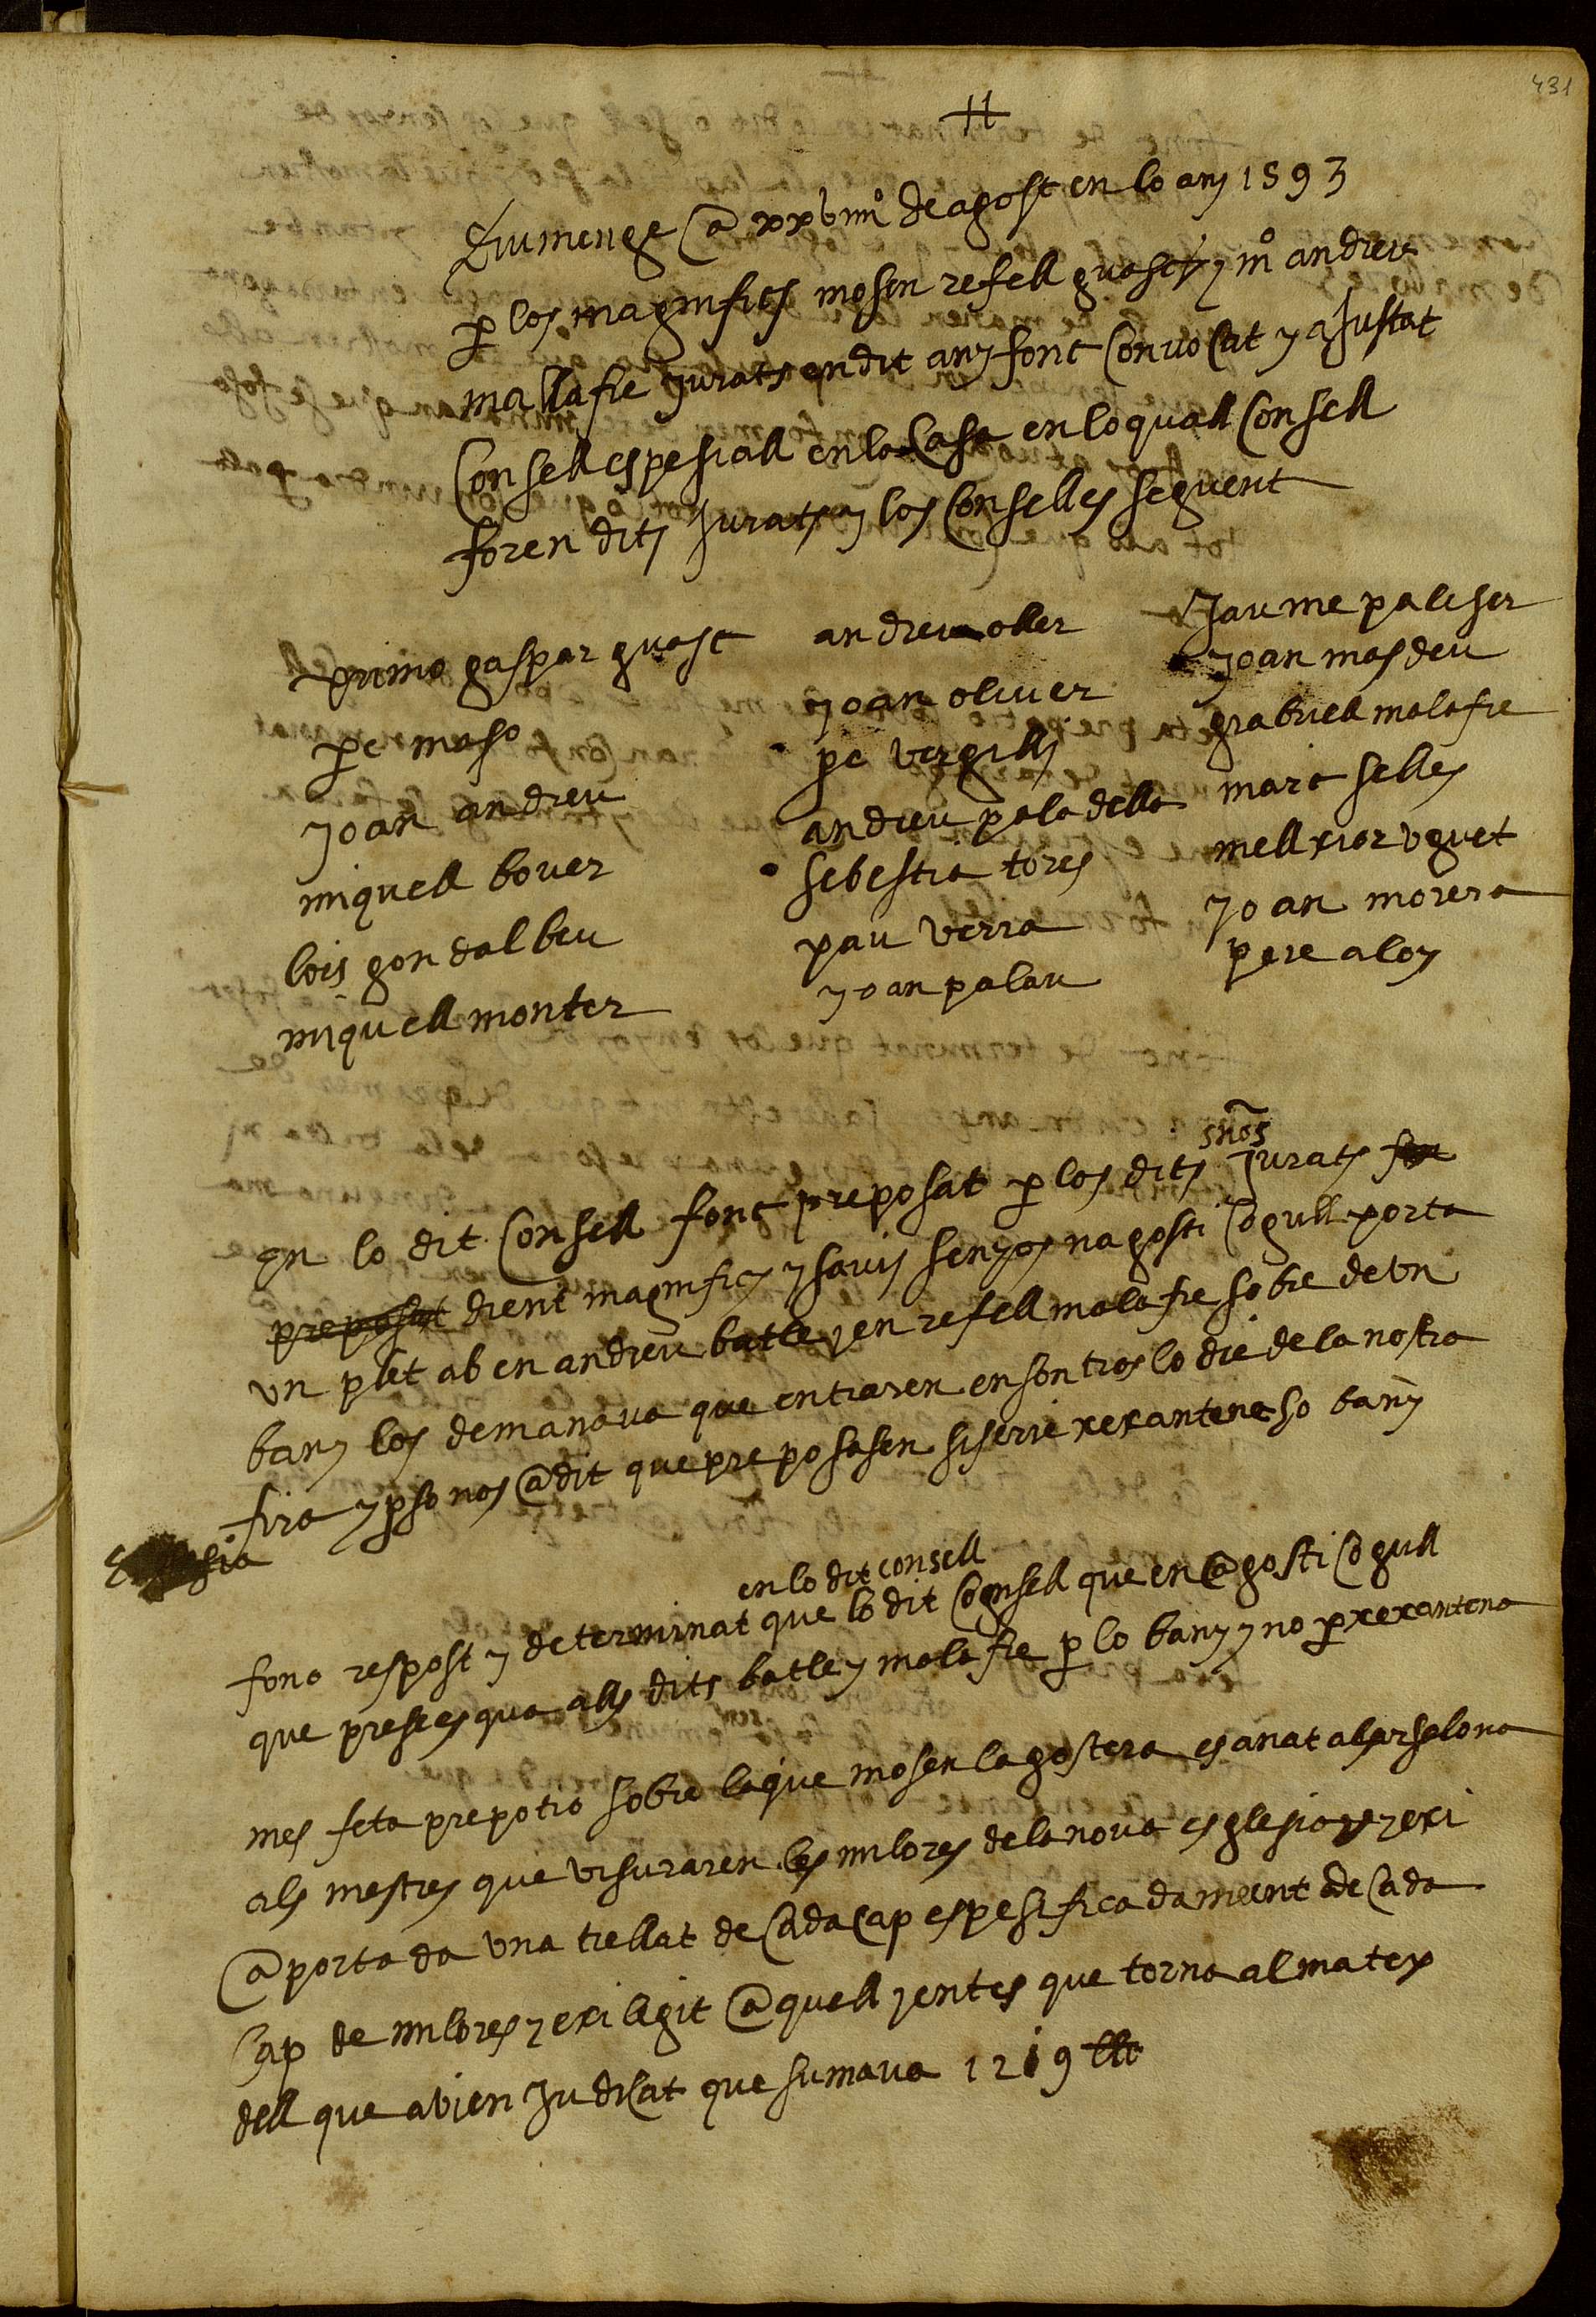 431
Diumenge a xxviiii de agost en lo any 1593
p los magnifics mosen refell guasch y mº andreu
mallafre jurats en dit any fonc convocat y ajustat
consell espesiall en la casa en lo quall consell
foren dits jurats y los conselles seguent
primo gaspar guasc
pe maso
joan andreu
miquell bover
lois gondalbeu
miquell monter
andreu oller
joan oliver
pe vergills
andreu paladella
sebestia tores
pau verra
joan palau
Jaume paleser
joan masdeu
grabriell malafre
marc selles
mellxior uguet
joan morera
pere aloy
sños
en lo dit consell fonc preposat p los dits jurats
preposat dient magnifics y savis senyos n agosti cogull porta
un plet ab en andreu batle y en refell malafre sobre de un
bany los demanava que entraren en son tros lo die de la nostra
fira y pso nos a dit que preposasen si serie xexantene so bany
en lo dit consell
fono respost y determinat que lo dit consell que en agosti cogull
que presees qua alls dits batle y malafre p lo bany y no p xexantena
mes feta prepotio sobre la que mosen lagostera es anat a barselona
als mestres que visuraren les milores de la nova esglesia y exi
a portada una trellat de cada cap espesificadament de cada
cap de milores y exi llegit aquell y entes que torna al matex
dell que avien judicat que sumava 1219 ll